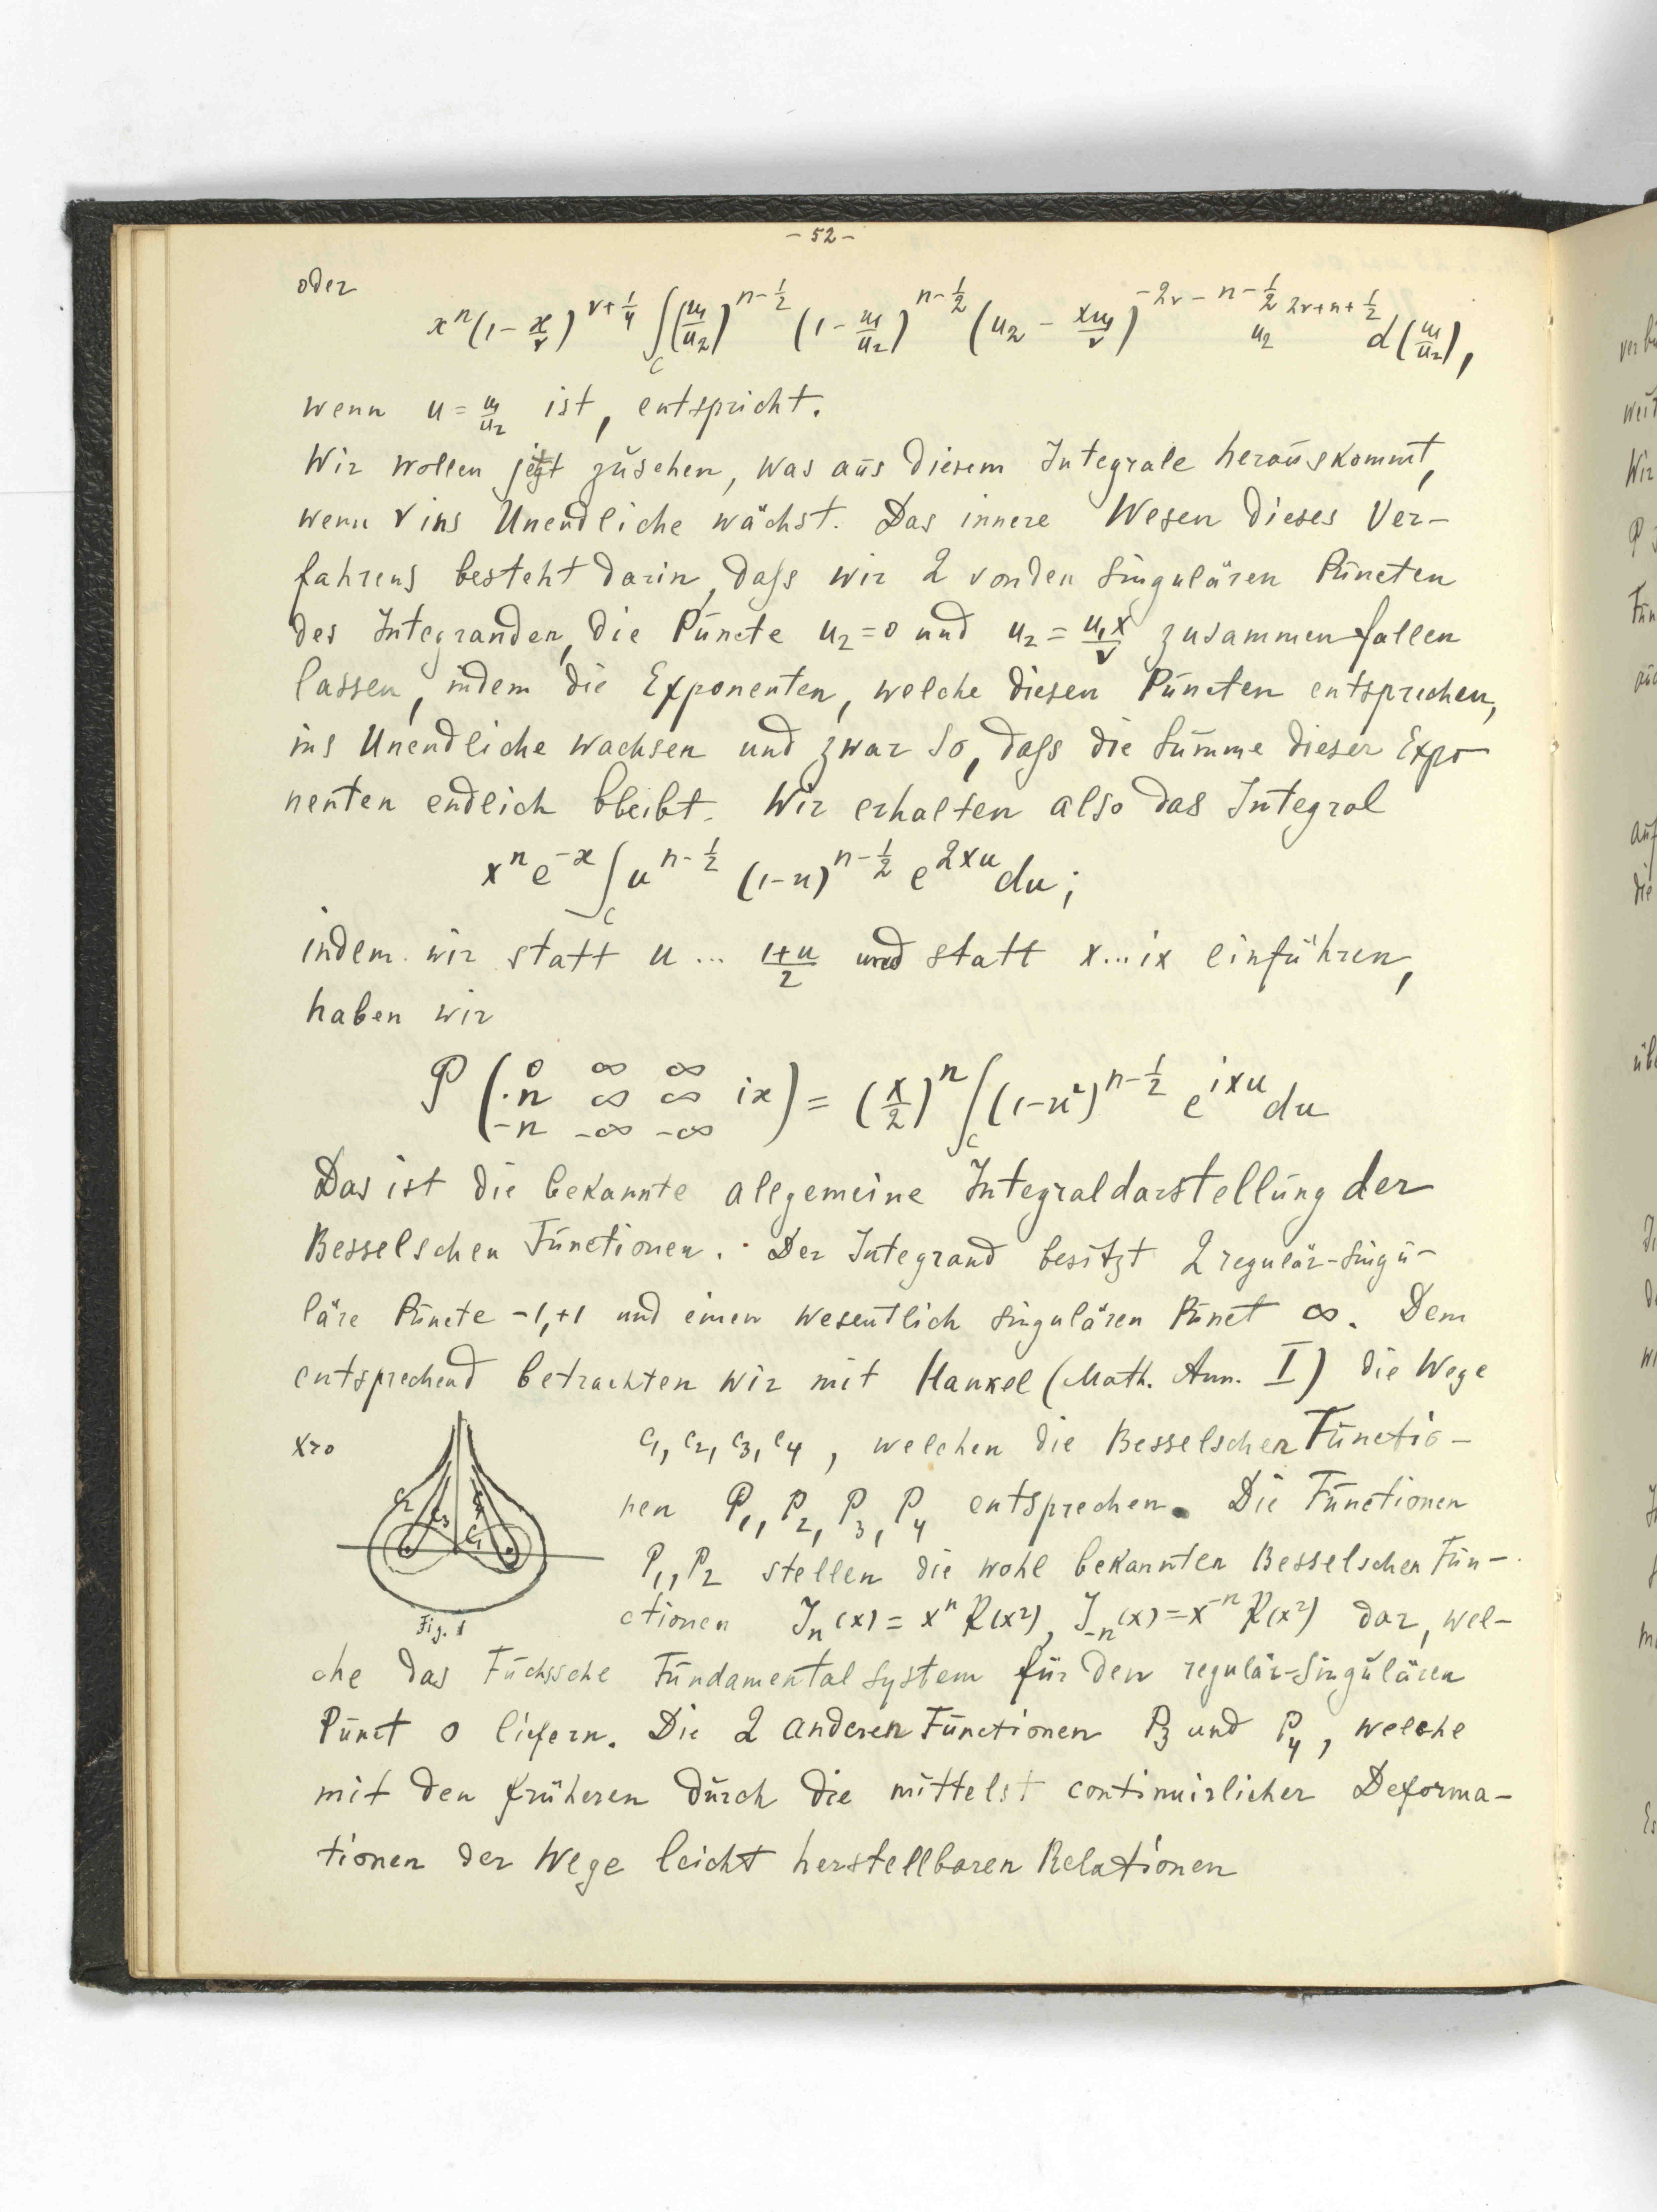 - 52 -
oder
x^n (1 - x/ν)^{ν+1/4} ∫_C (u₁/u₂)^{n-1/2} (1 - u₁/u₂)^{n-1/2} (u₂ - xu₁/ν)^{-2ν-n-1/2} u₂^{2ν+n+1/2} d(u₁/u₂),
wenn u = u₁/u₂ ist, entspricht.
Wir wollen jetzt zusehen, was aus diesem Integrale herauskommt,
wenn ν ins Unendliche wächst. Das innere Wesen dieses Ver-
fahrens besteht darin, dass wir 2 von den singulären Puncten
des Integranden, die Puncte u₂ = 0 und u₂ = u₁x/ν zusammenfallen
lassen, indem die Exponenten, welche diesen Puncten entsprechen,
ins Unendliche wachsen und zwar so, dass die Summe dieser Expo-
nenten endlich bleibt. Wir erhalten also das Integral
x^n e^{-x} ∫_C u^{n-1/2} (1-u)^{n-1/2} e^{2xu} du;
indem wir statt u ... (1+u)/2 und statt x...ix einführen,
haben wir
P ( 0 ∞ ∞
·n ∞ ∞ ix ) = (x/2)^n ∫_C (1-u²)^{n-1/2} e^{ixu} du
-n -∞ -∞
Das ist die bekannte allgemeine Integraldarstellung der
Besselschen Functionen. Der Integrand besitzt 2 regulär-singu-
läre Puncte -1, +1 und einen wesentlich singulären Punct ∞. Dem
entsprechend betrachten wir mit Hankel (Math. Ann. I) die Wege
x>0
c₁, c₂, c₃, c₄, welchen die Besselschen Functio-
nen P₁, P₂, P₃, P₄ entsprechen. Die Functionen
P₁, P₂ stellen die wohl bekannten Besselschen Fun-
ctionen J_n(x) = x^n R(x²), J_{-n}(x) = x^{-n} R(x²) dar, wel-
c₂ c₃ c₄ c₁
Fig. 1
che das Fuchssche Fundamentalsystem für den regulär-singulären
Punct 0 liefern. Die 2 anderen Functionen P₃ und P₄, welche
mit den früheren durch die mittelst continuirlicher Deforma-
tionen der Wege leicht herstellbaren Relationen